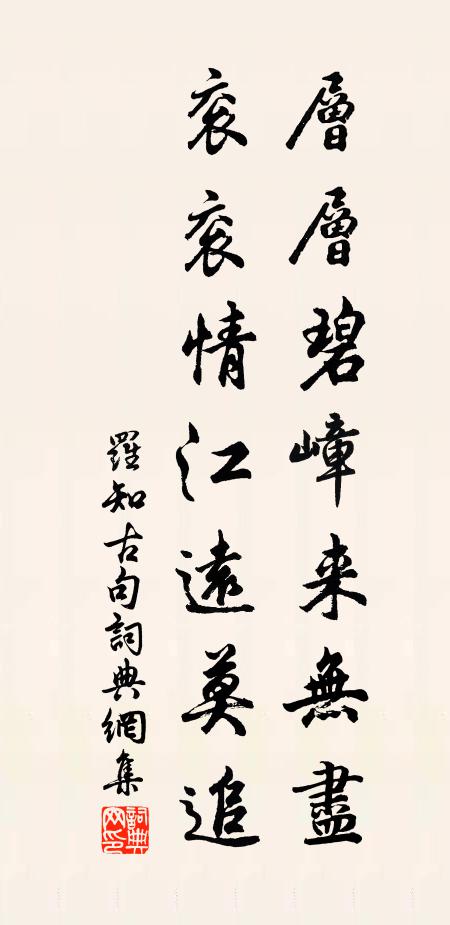 層層碧嶂来無盡
衮衮情江遠莫追
羅知古句詞典網集
詞典